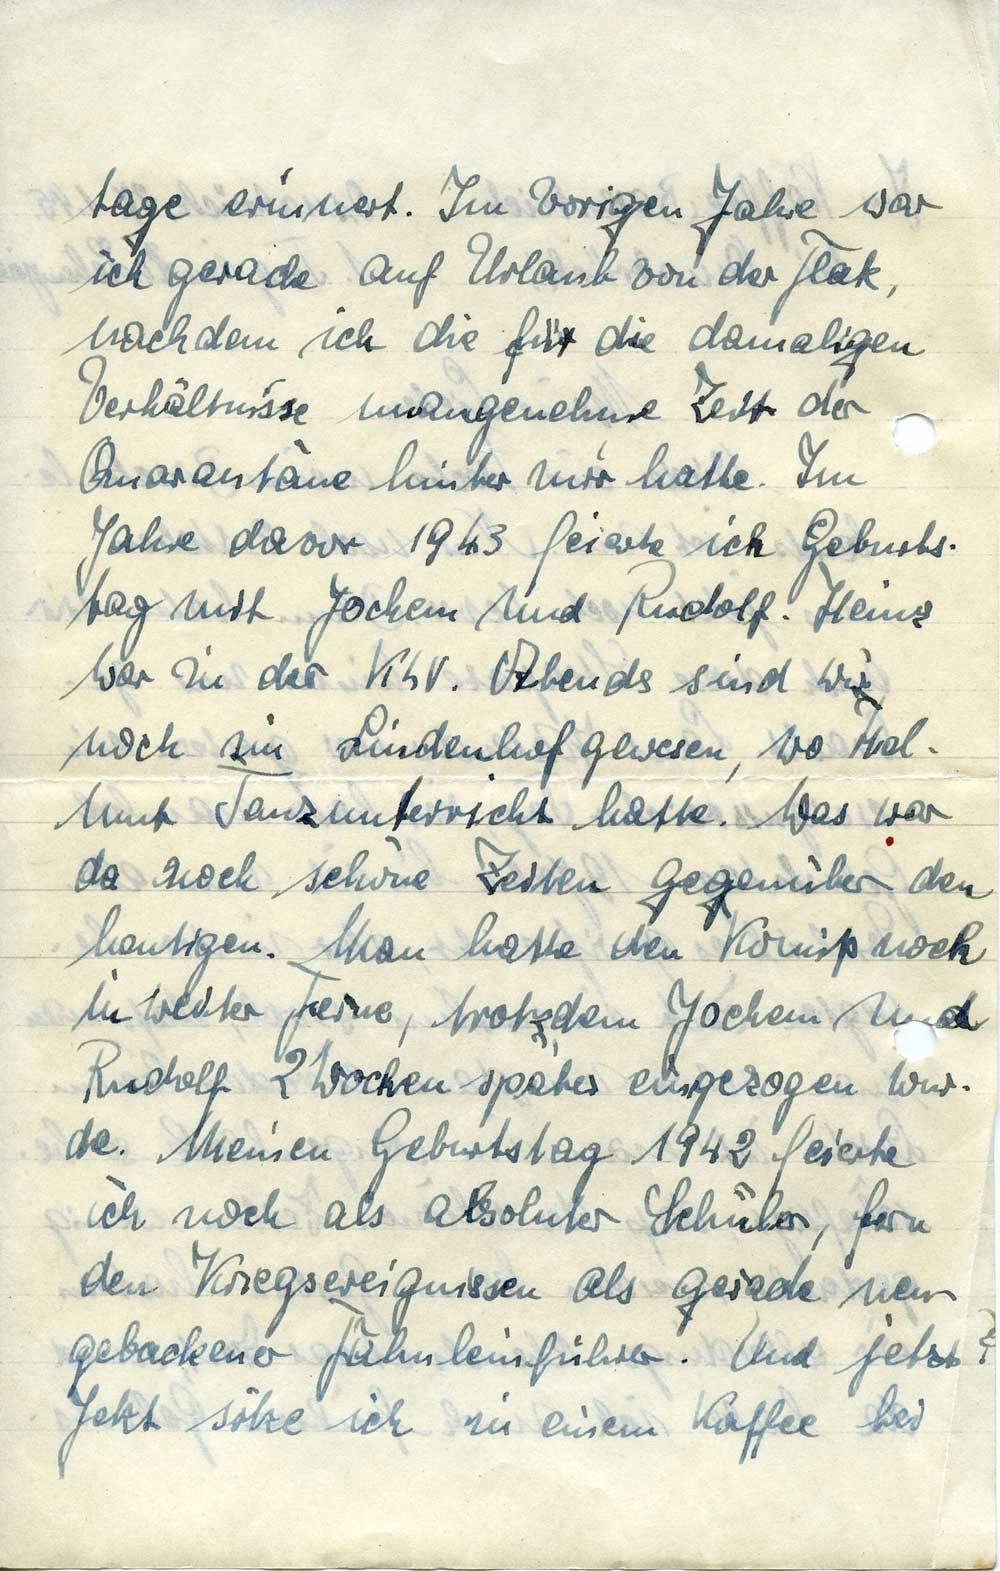 tage erinnert. Im vorigen Jahre war
ich gerade auf Urlaub von der Flak,
nachdem ich die für die damaligen
Verhältnisse unangenehme Zeit der
Quarantäne hinter mir hatte. Im
Jahre davor 1943 feierte ich Geburts-
tag mit Jochem und Rudolf. Heinz
war in der KLV. Abends sind wir
noch im Lindenhof gewesen, wo Hel-
mut Tanzunterricht hatte. Was war
da noch schöne Zeiten gegenüber den
heutigen. Man hatte den Komiß noch
in weiter Ferne, trotzdem Jochem und
Rudolf 2 Wochen später eingezogen wur-
de. Meinen Geburtstag 1942 feierte
ich noch als absoluter Schüler, fern
den Kriegsereignissen als gerade neu
gebackener Fähnleinführer. Und jetzt?
Jetzt sitze ich in einem Kaffee bei